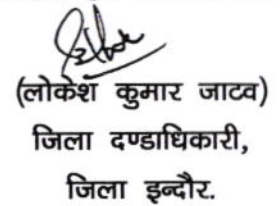 (लोकेश कुमार जाटव)
जिला दण्डाधिकारी,
जिला इन्दौर.